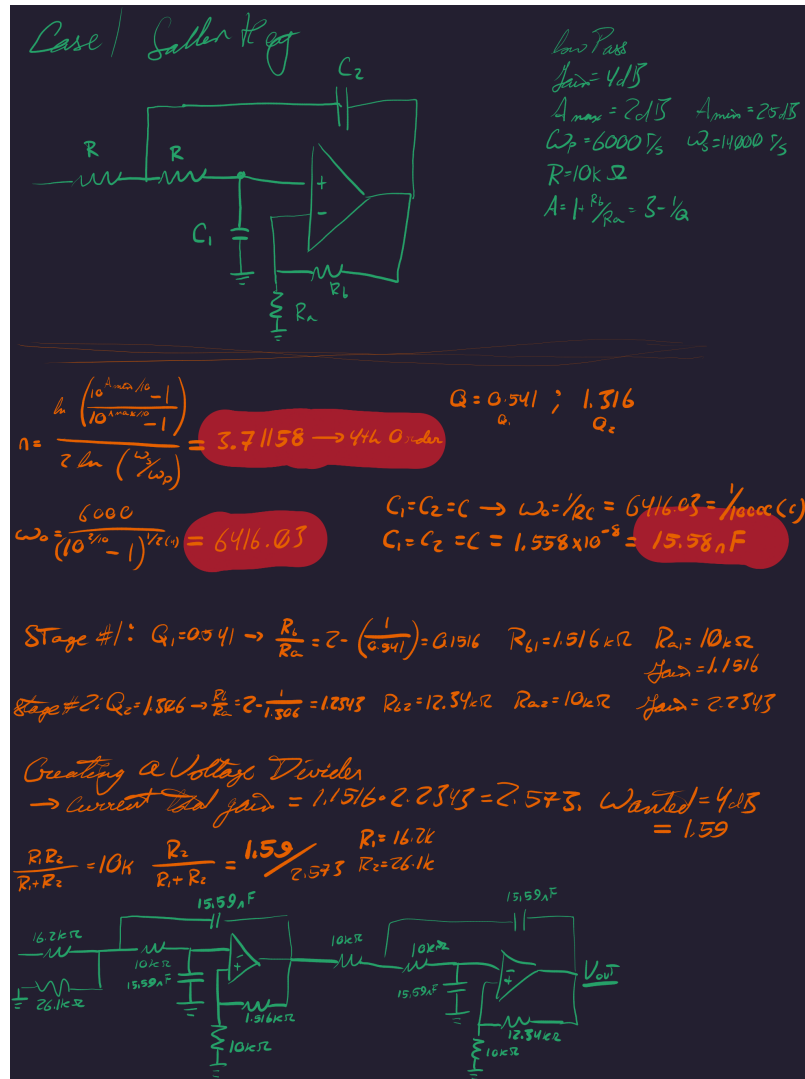 Case 1 Sallen Key
low Pass
Gain = 4dB
Amax = 2dB Amin = 25dB
ωp = 6000 r/s ωs = 14000 r/s
R = 10kΩ
A = 1 + Rb/Ra = 3 - 1/Q
C2
R R
+
-
C1
Rb
Ra
n = ln((10^(Amin/10) - 1)/(10^(Amax/10) - 1)) / 2 ln(ωs/ωp) = 3.71158 → 4th Order
Q = 0.541 ; 1.316
Q1 Q2
ω0 = 6000/(10^(2/10) - 1)^(1/2(4)) = 6416.03
C1 = C2 = C → ω0 = 1/RC = 6416.03 = 1/10000(C)
C1 = C2 = C = 1.558x10^-8 = 15.58nF
Stage #1: Q1 = 0.541 → Rb/Ra = 2 - (1/0.541) = 0.1516 Rb1 = 1.516kΩ Ra1 = 10kΩ
Gain = 1.1516
Stage #2: Q2 = 1.306 → Rb/Ra = 2 - 1/1.306 = 1.2343 Rb2 = 12.34kΩ Ra2 = 10kΩ Gain = 2.2343
Creating a Voltage Divider
→ Current total gain = 1.1516 · 2.2343 = 2.573. Wanted = 4dB
= 1.59
R1R2/(R1+R2) = 10K R2/(R1+R2) = 1.59/2.573 R1 = 16.2k
R2 = 26.1k
15.59nF 15.59nF
16.2kΩ 10kΩ 10kΩ 10kΩ
26.1kΩ 15.59nF 15.59nF Vout
1.516kΩ 12.34kΩ
10kΩ 10kΩ